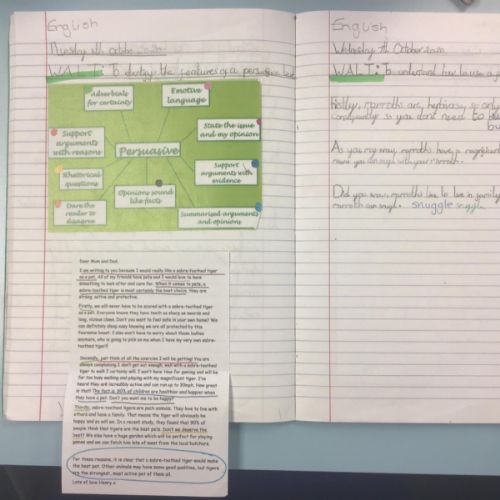 English
Tuesday 6th October 2020
WALT: To identify the features of a persuasive text
Adverbials for certainty
Emotive language
State the issue and my opinion
Support arguments with reasons
Persuasive
Support arguments with evidence
Rhetorical questions
Opinions sound like facts
Dare the reader to disagree
Summarised arguments and opinions
Dear Mum and Dad,
I am writing to you because I would really like a sabre-toothed tiger
as a pet. All of my friends have pets and I would love to have
something to look after and care for. When it comes to pets, a
sabre-toothed tiger is most certainly the best choice. They are
strong, active and protective.
Firstly, we will never have to be scared with a sabre-toothed tiger
as a pet. Everyone knows they have teeth as sharp as swords and
long, vicious claws. Don't you want to feel safe in your own home? We
can definitely sleep easy knowing we are all protected by this
fearsome beast. I also won't have to worry about those bullies
anymore, who is going to pick on me when I have my very own sabre-
toothed tiger?!
Secondly, just think of all the exercise I will be getting! You are
always complaining I don't get out enough, well with a sabre-toothed
tiger to walk I certainly will. I won't have time for gaming and will be
far too busy walking and playing with my magnificent tiger. I've
heard they are incredibly active and can run up to 30mph. How great
is that! The fact is, 80% of children are healthier and happier when
they have a pet. Don't you want me to be happy?
Thirdly, sabre-toothed tigers are pack animals. They love to live with
others and have a family. That means the tiger will obviously be
happy and so will we. In a recent study, they found that 90% of
people think that tigers are the best pets. Don't we deserve the
best? We also have a huge garden which will be perfect for playing
games and we can fetch him lots of meat from the local butchers.
For these reasons, it is clear that a sabre-toothed tiger would make
the best pet. Other animals may have some good positives, but tigers
are the strongest, most active pet of them all.
Lots of love Henry x
English
Wednesday 7th October 2020
WALT: To understand how to use
Firstly, mammoths are herbivores so only
so you don't need to
As you may know, mammoths have a magnificent
you can snuggle with your mammoth.
Did you know, mammoths like to live in family
mammoth can snuggle. snuggle